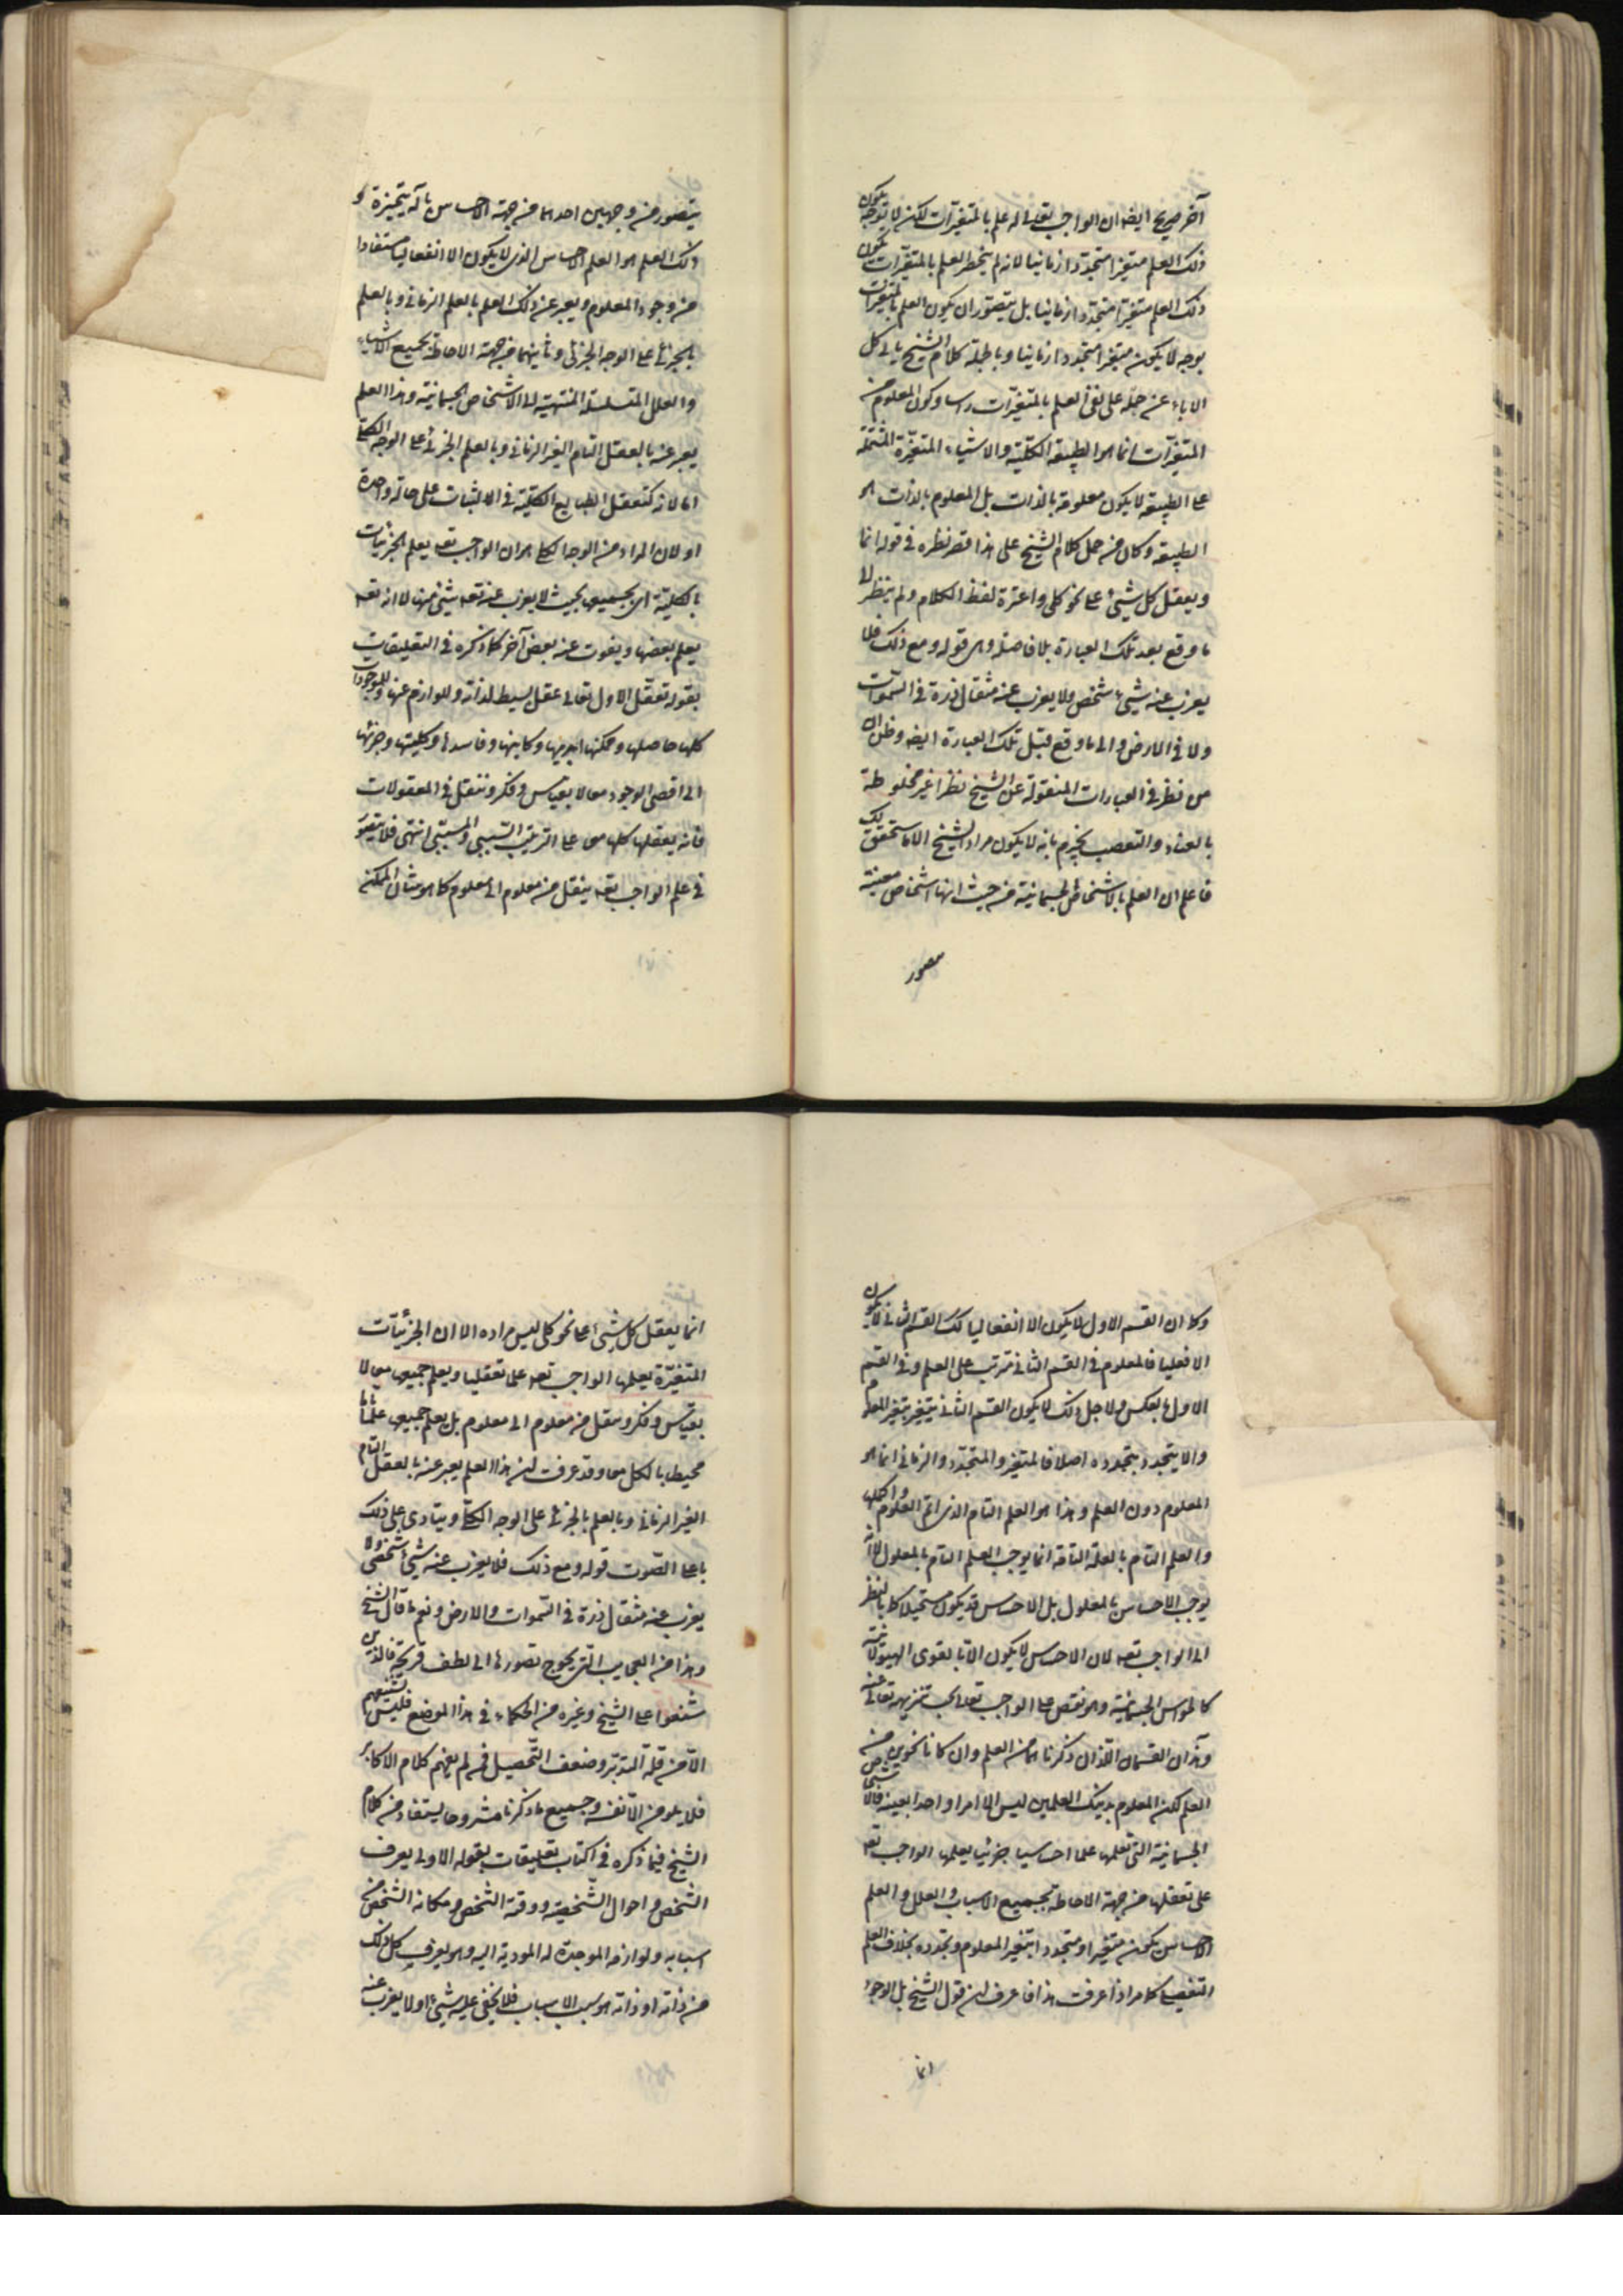 آخر صريح ايضا ان الواجب تعالى له علم بالمتغيرات لكن لا بوجه يكون
ذلك العلم متغيرا متجددا زمانيا لانه لم ينحصر العلم بالمتغيرات يكون
ذلك العلم متغيرا متجددا زمانيا بل يتصور ان يكون العلم بالمتغيرات
بوجه لا يكون متغيرا متجددا زمانيا وبالجملة كلام الشيخ يابى كل
الاباء عن حمله على نفى العلم بالمتغيرات راسا وكون المعلوم من
المتغيرات انما هو الطبيعة الكلية والاشياء المتغيرة المشتملة
على الطبيعة لا يكون معلومة بالذات بل المعلوم بالذات هو
الطبيعة وكان من حمل كلام الشيخ على هذا قصر نظره فى قوله انما
ويعقل كل شىء على نحو كلى واغتره لفظ الكلام ولم ينظر الى
ما وقع بعد تلك العبارة بلا فاصلة وهى قوله ومع ذلك فلا
يعزب عنه شىء شخصى ولا يعزب عنه مثقال ذرة فى السموات
ولا فى الارض والى ما وقع قبل تلك العبارة ايضا وظن ان
من نظر فى العبارات المنقولة عن الشيخ نظرا غير مخلوطة
بالعناد والتعصب يجزم بانه لا يكون مراد الشيخ الا ما سنحقق لك
فاعلم ان العلم بالاشخاص الجسمانية من حيث انها اشخاص معينة
يتصور من وجهين احدهما من جهة الاحساس بآلة متحيزة و
ذلك العلم هو العلم الاحساسى الذى لا يكون الا انفعاليا مستفادا
من وجود المعلوم ويعبر عن ذلك العلم بالعلم الزمانى وبالعلم
بالجزئى على الوجه الجزئى وثانيهما من جهة الاحاطة بجميع الاشياء
والعلل المتسلسلة المنتهية الى الاشخاص الجسمانية وهذا العلم
يعبر عنه بالتعقل التام الغير الزمانى وبالعلم الجزئى على الوجه الكلى
اما لانه كتعقل الطبايع الكلية فى الاثبات على حالة واحدة
او لان المراد من الوجه الكلى هو ان الواجب تعه يعلم الجزئيات
بالكلية اى بجميعها بحيث لا يعزب عنه تعه شىء منها لا انه تعه
يعلم بعضها ويفوت عنه بعض آخر كما ذكره فى التعليقات
بقوله تعقل الاول تعالى عقل بسيط لذاته وللوازم عنها وللموجودات
كلها حاصلها وممكنها ابديها وكاينها وفاسدها وكليتها وجزئيها
الى اقصى الوجود معا لا بقياس وفكر وتنقل فى المعقولات
فانه يعقلها كلها معا على الترتيب السببى والمسببى انتهى فلا يتغير
فى علم الواجب تعه ينقل من معلوم الى معلوم كما هو شان الممكن
وكما ان القسم الاول لا يكون الا انفعاليا كك القسم الثانى لا يكون
الا فعليا فالمعلوم فى القسم الثانى مترتب على العلم وفى القسم
الاول بالعكس ولاجل ذلك لا يكون القسم الثانى يتغير بتغير المعلوم
والا يتجدد بتجدده اصلا فالمتغير والمتجدد والزمانى انما هو
المعلوم دون العلم وهذا هو العلم التام الذى اتم العلوم واكملها
والعلم التام بالعلة التامة انما يوجب العلم التام بالمعلول لا انه
يوجب الاحساس بالمعلول بل الاحساس قد يكون مستحيلا كما بالنظر
الى الواجب تعه لان الاحساس لا يكون الا بالقوى الهيولانية
كالحواس الجسمانية وهو نقص على الواجب تعالى يجب تنزيهه تعالى عنه
وهذان القسمان اللذان ذكرناهما من العلم وان كانا نحوين من
العلم لكن المعلوم بذينك العلمين ليس الا امرا واحدا بعينه فالاشخاص
الجسمانية التى نعلمها علما احساسيا جزئيا يعلمها الواجب تعه
على تعقلها من جهة الاحاطة بجميع الاسباب والعلل والعلم
الاحساسى يكون متغيرا ومتجددا بتغير المعلوم وتجدده بخلاف العلم
التعقلى كما مر اذا عرفت هذا فاعرف ان قول الشيخ بل الواجب
انما يعقل كل شىء على نحو كلى ليس مراده الا ان الجزئيات
المتغيرة يعلمها الواجب تعه علما تعقليا ويعلم جميعها معا لا
بقياس وفكر وتنقل من معلوم الى معلوم بل يعلم جميعها علما تاما
محيطا بالكل معا وقد عرفت ان هذا العلم يعبر عنه بالعقل التام
الغير الزمانى وبالعلم بالجزئى على الوجه الكلى وينادى على ذلك
باعلى الصوت قوله ومع ذلك فلا يعزب عنه شىء شخصى ولا
يعزب عنه مثقال ذرة فى السموات والارض ونعم ما قال الشيخ
وهذا من العجايب التى يحوج تصورها الى لطف قريحة فالذين
شنعوا على الشيخ وغيره من الحكماء فى هذا الموضع فليس تشنيعهم
الا من قلة التدبر وضعف التحصيل فمن لم يفهم كلام الاكابر
فلا يلومن الا نفسه وجميع ما ذكرنا مشروحا يستفاد من كلام
الشيخ فيما ذكره فى كتاب تعليقات بقوله الاول يعرف
الشخص واحوال الشخصية ووقته الشخص ومكانه الشخص من
اسبابه ولوازمه الموجدة له المودية اليه وهو يعرف كل ذلك
من ذاته اذ ذاته هو سبب الاسباب فلا يخفى عليه شىء ولا يعزب عنه
انما